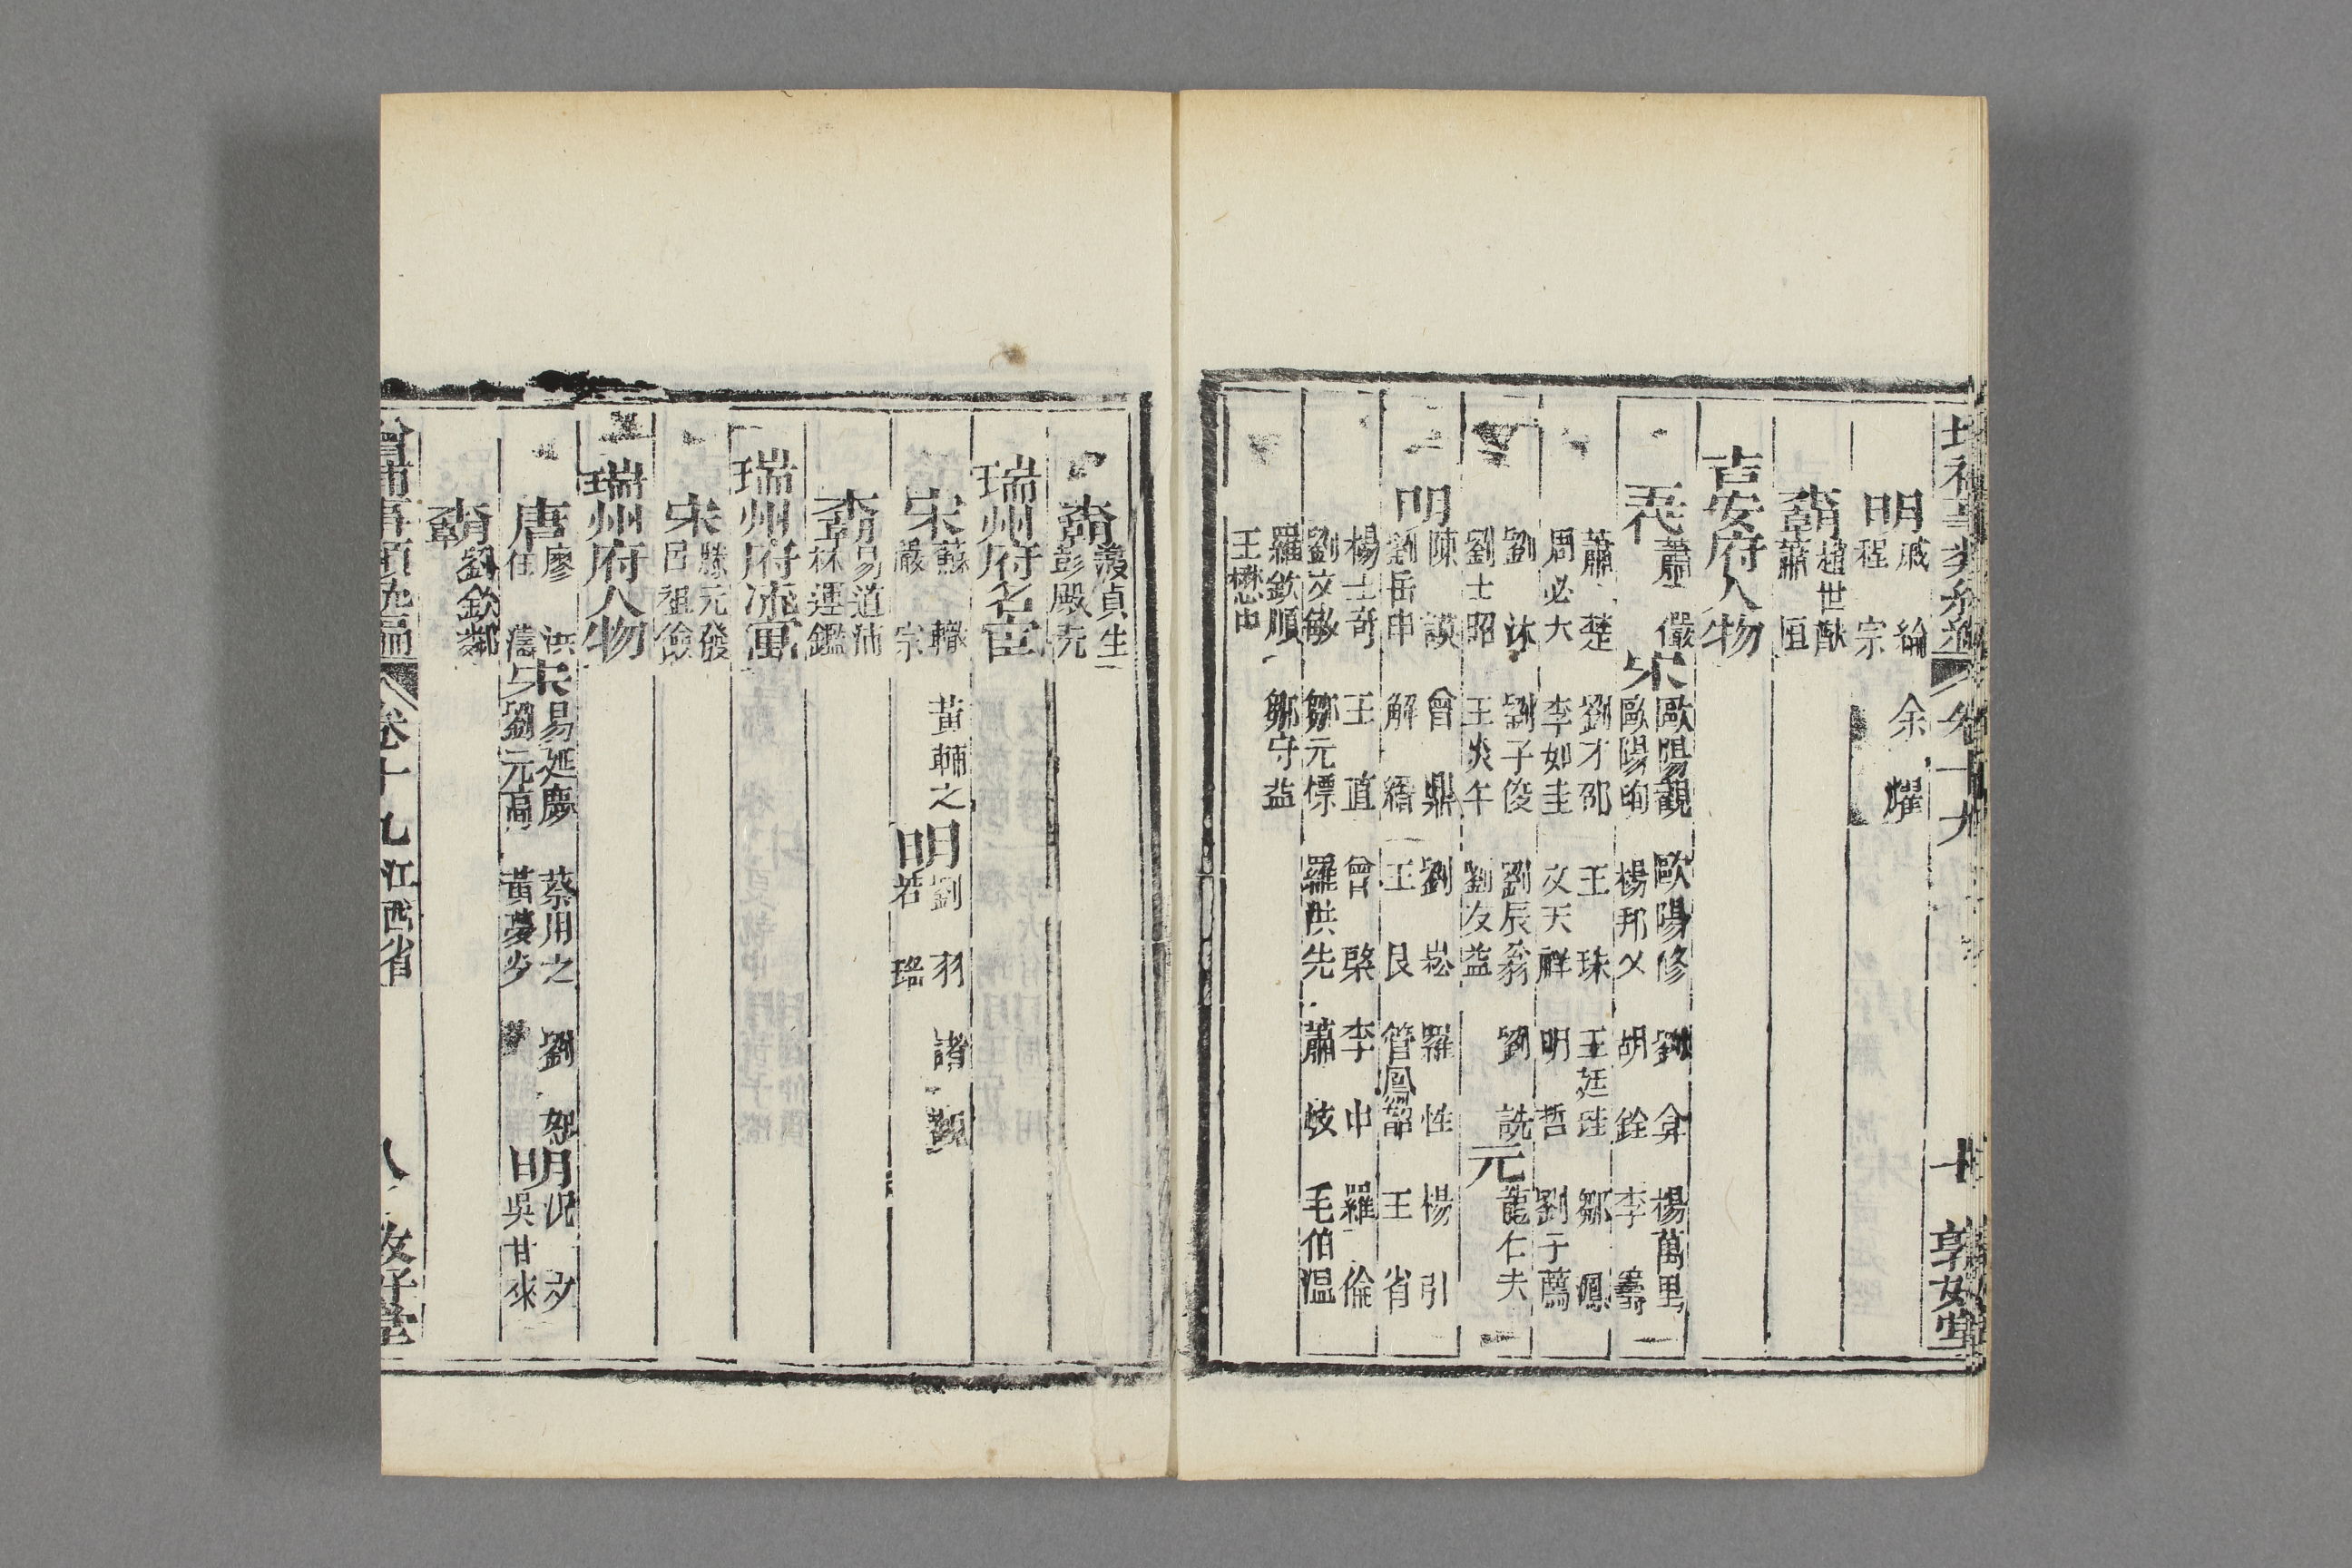 明
戚綸 余耀
程宗
趙世猷
蕭恒
吉安府人物
蕭儼
宋
歐陽觀 歐陽修 劉弇 楊萬里
歐陽珣 楊邦乂 胡銓 李籌
蕭楚 劉才邵 王珠 王廷珪 鄒鳳
周必大 李如圭 文天祥 明哲 劉于薦
劉沐 劉子俊 劉辰翁 劉詵
元
龍仁夫
劉士昭 王炎午 劉友益
明
陳謨 曾鼎 劉崧 羅性 楊引
劉岳申 解縉 王艮 管鳳韶 王省
楊士奇 王直 曾棨 李中 羅倫
劉文敏 鄒元標 羅洪先 蕭岐 毛伯温
羅欽順 鄒守益
王懋中
卷十九
敦好堂
貞生
彭殿元
瑞州府名宦
宋
蘇轍 黃輔之
嚴宗
明
劉羽 諸觀
若珞
易道沛
林運鑑
瑞州府流寓
宋
滕元發
呂祖儉
瑞州府人物
唐
廖洪
任濤
宋
易延慶 蔡用之 劉恕
劉元高 黃夢炎
明
況文
吳甘來
劉欽鄰
增補事類統編 卷十九 江西省 八 敦好堂